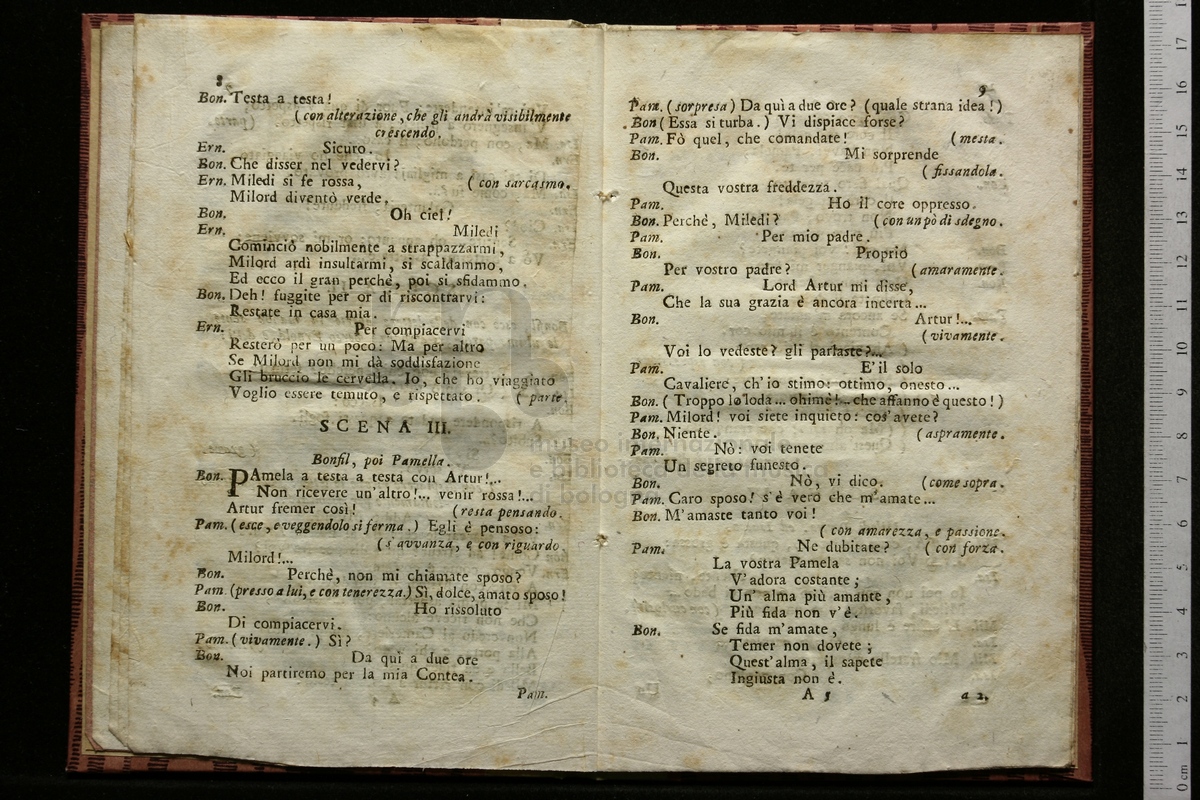 8
Bon. Testa a testa!
( con alterazione, che gli andrà visibilmente
crescendo.
Ern. Sicuro.
Bon. Che disser nel vedervi?
Ern. Miledi si fe rossa, ( con sarcasmo.
Milord diventò verde.
Bon. Oh ciel!
Ern. Miledi
Cominciò nobilmente a strappazzarmi,
Milord ardì insultarmi, si scaldammo,
Ed ecco il gran perchè, poi si sfidammo.
Bon. Deh! fuggite per or di riscontrarvi:
Restate in casa mia.
Ern. Per compiacervi
Resterò per un poco: Ma per altro
Se Milord non mi dà soddisfazione
Gli bruccio le cervella. Io, che ho viaggiato
Voglio essere temuto, e rispettato. ( parte.
SCENA III.
Bonfil, poi Pamella.
Bon. PAmela a testa a testa con Artur!...
Non ricevere un'altro!... venir rossa!...
Artur fremer così! ( resta pensando.
Pam. ( esce, e veggendolo si ferma. ) Egli è pensoso:
( s'avvanza, e con riguardo.
Milord!...
Bon. Perchè, non mi chiamate sposo?
Pam. (presso a lui, e con tenerezza.) Sì, dolce, amato sposo!
Bon. Ho rissoluto
Di compiacervi.
Pam. ( vivamente. ) Sì?
Bon. Da quì a due ore
Noi partiremo per la mia Contea.
Pam.
9
Pam. ( sorpresa ) Da quì a due ore? (quale strana idea!)
Bon (Essa si turba. ) Vi dispiace forse?
Pam. Fò quel, che comandate! ( mesta.
Bon. Mi sorprende
( fissandola.
Questa vostra freddezza.
Pam. Ho il core oppresso.
Bon. Perchè, Miledi? ( con un pò di sdegno.
Pam. Per mio padre.
Bon. Proprio
Per vostro padre? ( amaramente.
Pam. Lord Artur mi disse,
Che la sua grazia è ancora incerta...
Bon. Artur!...
( vivamente.
Voi lo vedeste? gli parlaste?...
Pam. E'il solo
Cavaliere, ch'io stimo: ottimo, onesto...
Bon. ( Troppo lo loda... ohimè!... che affanno è questo! )
Pam. Milord! voi siete inquieto: cos'avete?
Bon. Niente. ( aspramente.
Pam. Nò: voi tenete
Un segreto funesto.
Bon. Nò, vi dico. ( come sopra.
Pam. Caro sposo! s'è vero che m'amate...
Bon. M'amaste tanto voi!
( con amarezza, e passione.
Pam. Ne dubitate? ( con forza.
La vostra Pamela
V'adora costante;
Un' alma più amante,
Più fida non v'è.
Bon. Se fida m'amate,
Temer non dovete;
Quest'alma, il sapete
Ingiusta non è.
A 5 a 2.
museo internazionale
e biblioteca della musica
di bologna
0 cm 1 2 3 4 5 6 7 8 9 10 11 12 13 14 15 16 17